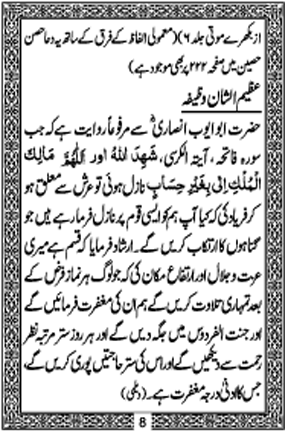 از بکھرے موتی جلد ۶)(معمولی الفاظ کے فرق کے ساتھ یہ دعا حصن
حصین میں صفحہ ۲۲۲ پر بھی موجود ہے)
عظیم الشان وظیفہ
حضرت ابو ایوب انصاریؓ سے مرفوعاً روایت ہے کہ جب
سورہ فاتحہ، آیتہ الکرسی، شَهِدَ اللهُ اور اَللّٰهُمَّ مَالِكَ
الْمُلْكِ اِلٰى بِغَيْرِ حِسَابٍ نازل ہوئی تو عرش سے معلق ہو
کر فریاد کی کہ کیا آپ ہم کو ایسی قوم پر نازل فرما رہے ہیں جو
گناہوں کا ارتکاب کریں گے۔ ارشاد فرمایا کہ قسم ہے میری
عزت و جلال اور ارتفاع مکان کی کہ جو لوگ ہر نماز فرض کے
بعد تمہاری تلاوت کریں گے ہم ان کی مغفرت فرمائیں گے
اور جنت الفردوس میں جگہ دیں گے اور ہر روز ستر مرتبہ نظر
رحمت سے دیکھیں گے اور اس کی ستر حاجتیں پوری کریں گے،
جس کا ادنیٰ درجہ مغفرت ہے۔ (دیلمی)
8